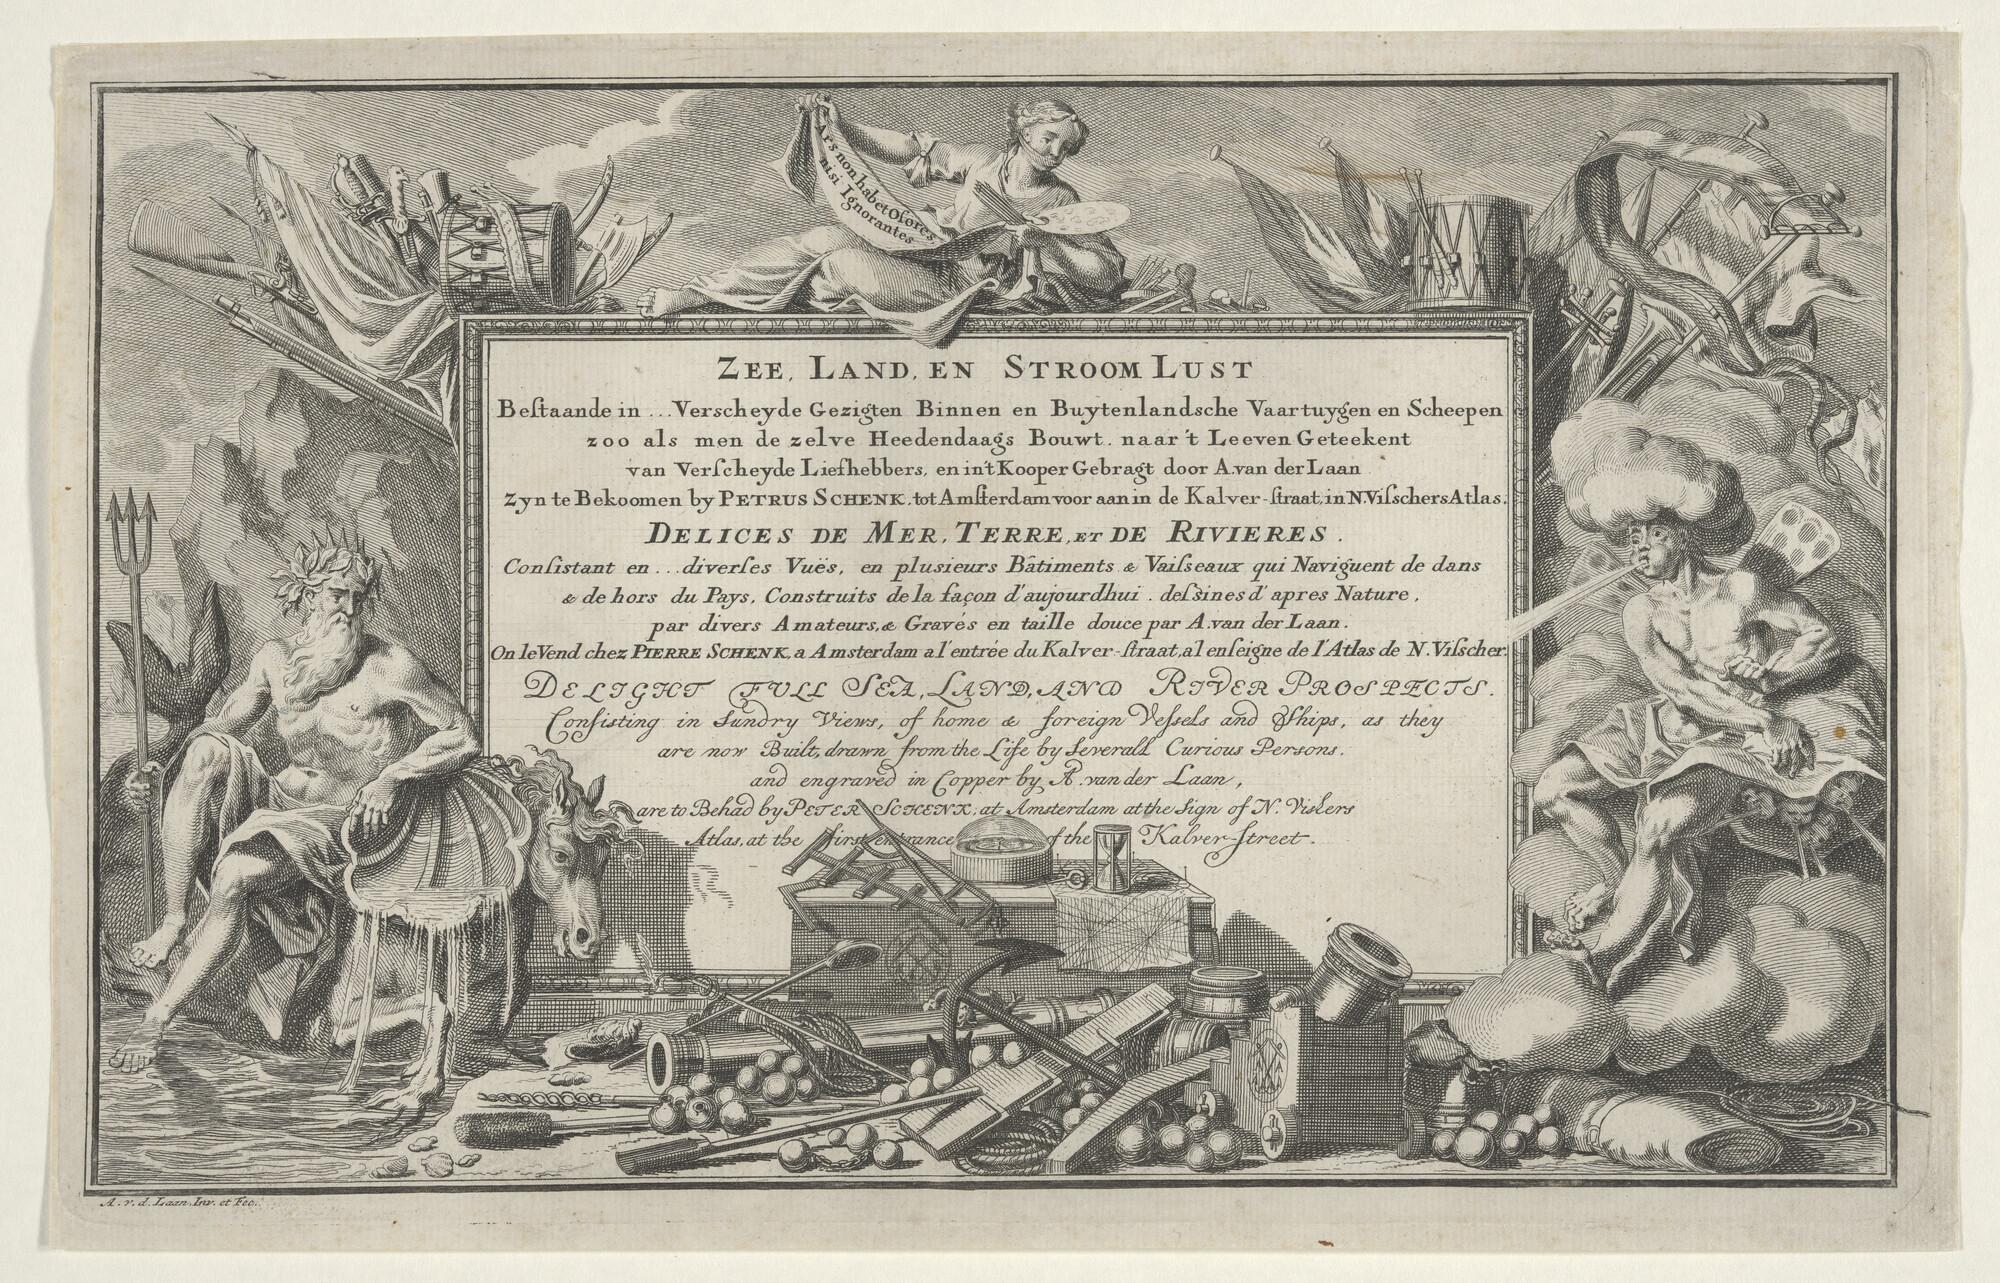 Ars non habet Osores,
nisi Ignorantes
ZEE, LAND, EN STROOM LUST
Beſtaande in ... Verscheyde Gezigten Binnen en Buytenlandsche Vaartuygen en Scheepen
zoo als men de zelve Heedendaags Bouwt. naar 't Leeven Geteekent
van Verſcheyde Liefhebbers, en in't Kooper Gebragt door A. van der Laan
Zyn te Bekoomen by PETRUS SCHENK. tot Amſterdam voor aan in de Kalver-ſtraat, in N. Viſschers Atlas.
DELICES DE MER, TERRE, ET DE RIVIERES.
Conſistant en ... diverſes Vuës, en plusieurs Bâtiments & Vaiſseaux qui Naviguent de dans
& de hors du Pays, Construits de la façon d'aujourdhui. deſsines d'apres Nature,
par divers Amateurs, & Gravés en taille douce par A. van der Laan.
On le Vend chez PIERRE SCHENK, a Amsterdam a l'entrée du Kalver-ſtraat, al enſeigne de l'Atlas de N. Viſscher.
DELIGHT FULL SEA, LAND, AND RIVER PROSPECTS.
Conſisting in Sundry Views, of home & foreign Veſsels and Ships, as they
are now Built, drawn from the Life by Severall Curious Persons.
and engraved in Copper by A. van der Laan,
are to Behad by PETER SCHENK, at Amsterdam at the Sign of N. Viskers
Atlas, at the first entrance of the Kalver-street.
A. v. d. Laan, Inv. et Fec.